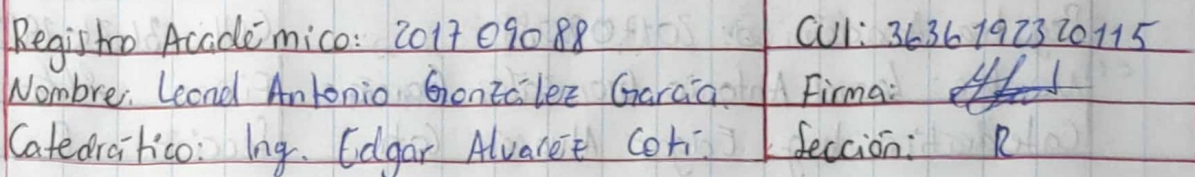 Registro Académico: 201709088 CUI: 3636192320115
Nombre: Leonel Antonio González García Firma:
Catedrático: Ing. Edgar Alvaréz Cotí Sección: R